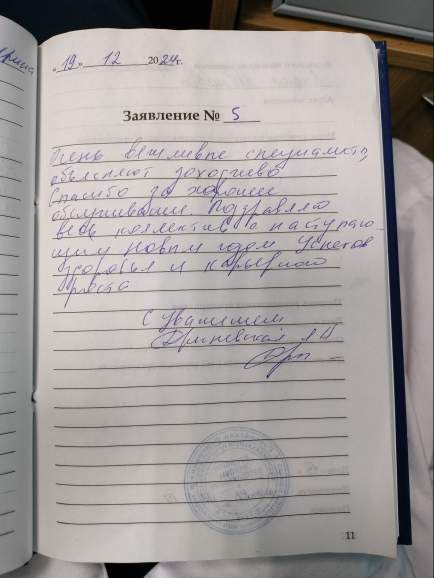 „19" 12 2024г.
Заявление № 5
Очень вежливые специалисты,
объясняют доходчиво
Спасибо за хорошее
обслуживание. Поздравляю
весь коллектив с наступаю-
щим Новым годом Успехов
здоровья и карьерного
роста
С уважением
11